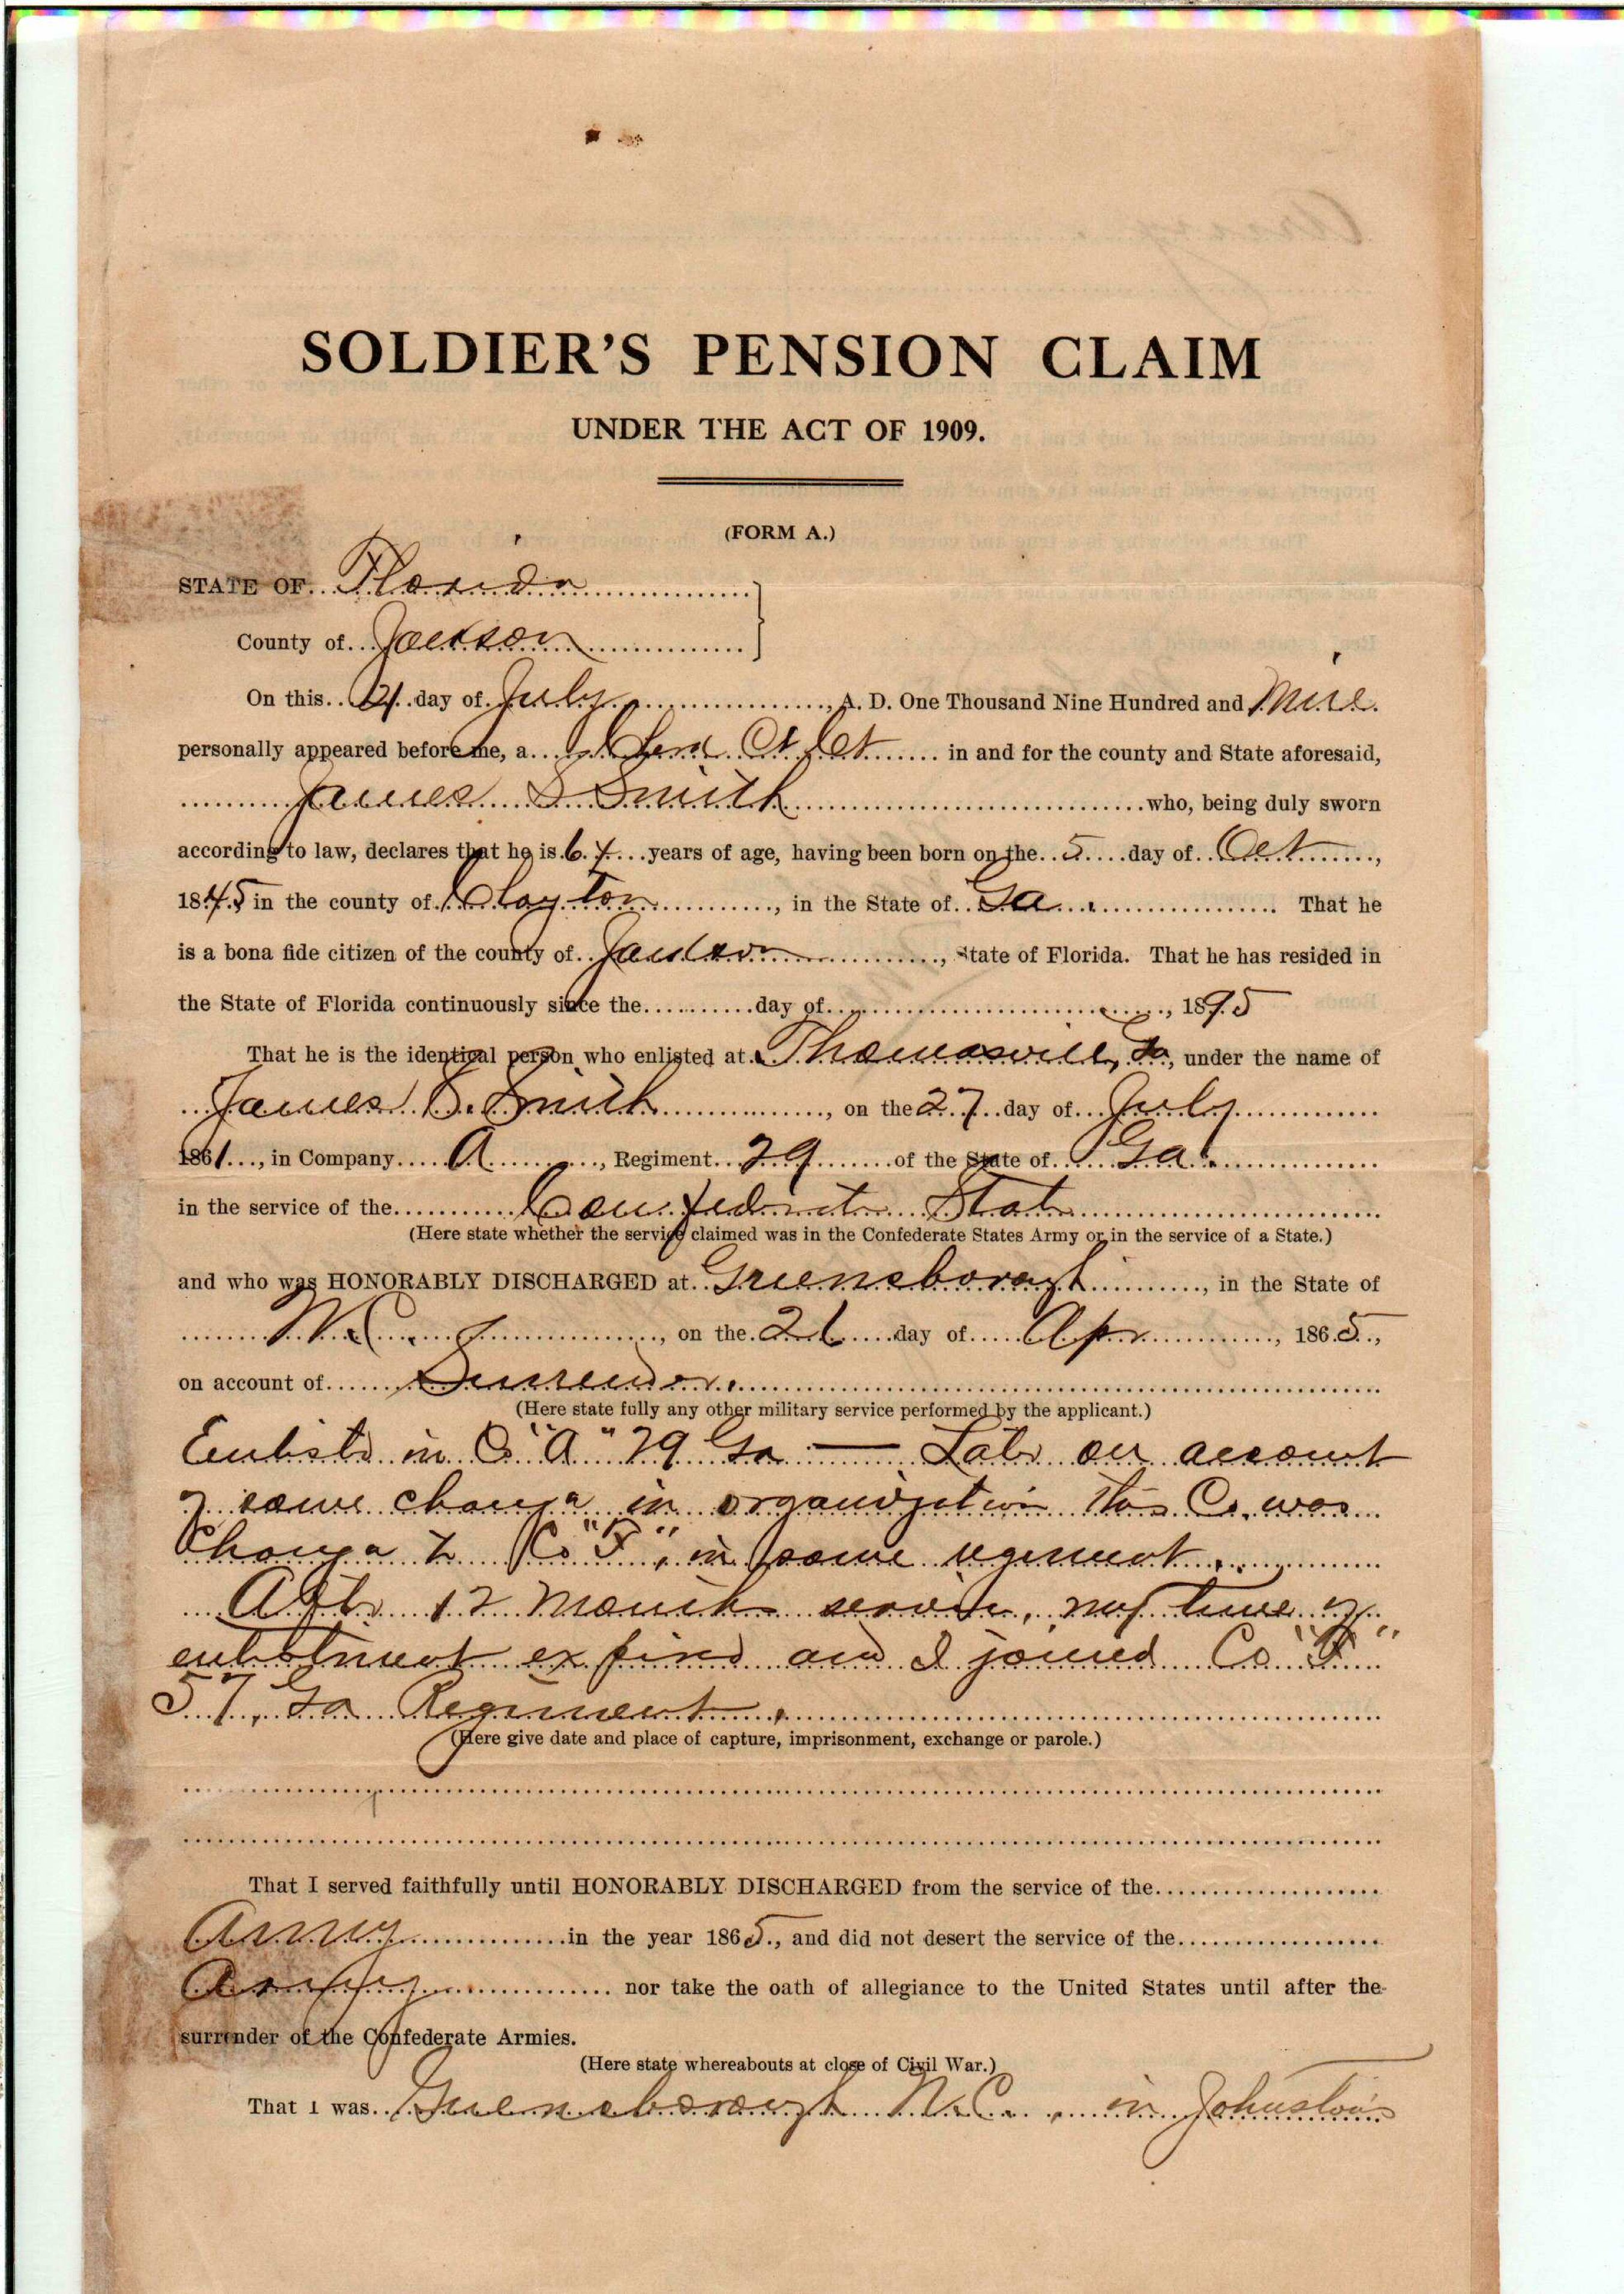 SOLDIER'S PENSION CLAIM
UNDER THE ACT OF 1909.
(FORM A.)
STATE OF Florida
County of Jackson
On this 21 day of July, A. D. One Thousand Nine Hundred and Nine
personally appeared before me, a Ct in and for the county and State aforesaid,
James S Smith who, being duly sworn
according to law, declares that he is 64 years of age, having been born on the 5 day of Oct,
1845 in the county of Clayton, in the State of Ga. That he
is a bona fide citizen of the county of Jackson, State of Florida. That he has resided in
the State of Florida continuously since the day of, 1895
That he is the identical person who enlisted at Thomasville, Ga, under the name of
James S. Smith, on the 27 day of July
1861, in Company A, Regiment 29 of the State of Ga.
in the service of the Confederate State
(Here state whether the service claimed was in the Confederate States Army or in the service of a State.)
and who was HONORABLY DISCHARGED at Greensborough, in the State of
N.C., on the 26 day of Apr, 1865,
on account of Surrender.
(Here state fully any other military service performed by the applicant.)
Enlisted in Co "A" 29 Ga — Later on account
of some change in organization this Co. was
change to Co "F", in same regiment.
After 12 months service, my time of
enlistment expired and I joined Co
57, Ga Regiment.
(Here give date and place of capture, imprisonment, exchange or parole.)
That I served faithfully until HONORABLY DISCHARGED from the service of the
Army in the year 1865, and did not desert the service of the
Army nor take the oath of allegiance to the United States until after the
surrender of the Confederate Armies.
(Here state whereabouts at close of Civil War.)
That I was Greensborough N.C., in Johnston's